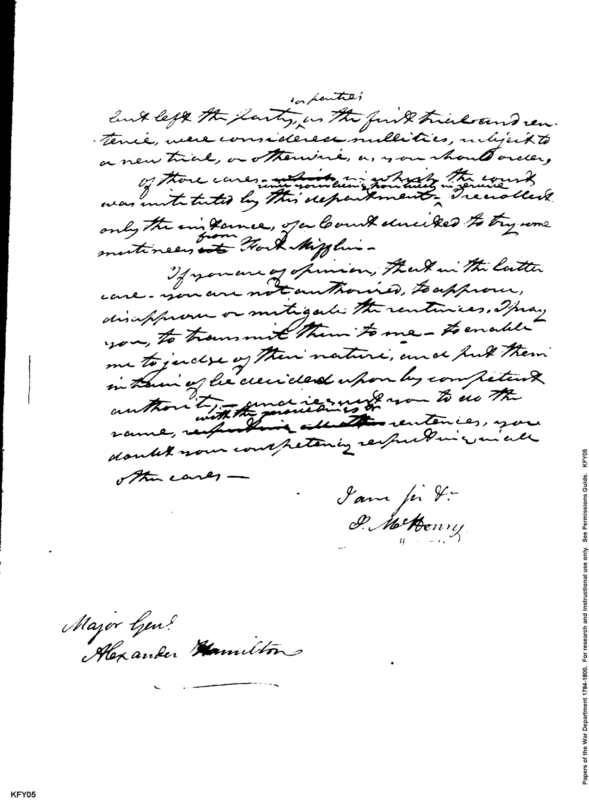 or parties
but left the party, as the first trial and sen-
tence, were considered nullities, subject to
a new trial, or otherwise, as you should order,
of those cases - which in which the court
since your being positively in service
was instituted by this department - I recollect
only the instance, of a Court decided to try some
from
mutineers at Fort Mifflin -
If you are of opinion, that in the latter
case - you are not authorised, to approve,
disapprove or mitigate the sentences, I pray
you, to transmit them to me - to enable
me to judge of their nature, and put them
in train of be decided upon by competent
authority, - and request you to do the
with the proceedings or
same, respecting all other sentences, you
doubt your competency respecting in all
other cases -
I am sir &.
J. McHenry
Major Genl.
Alexander Hamilton
Papers of the War Department 1784-1800. For research and instructional use only. See Permissions Guide. KFY05
KFY05